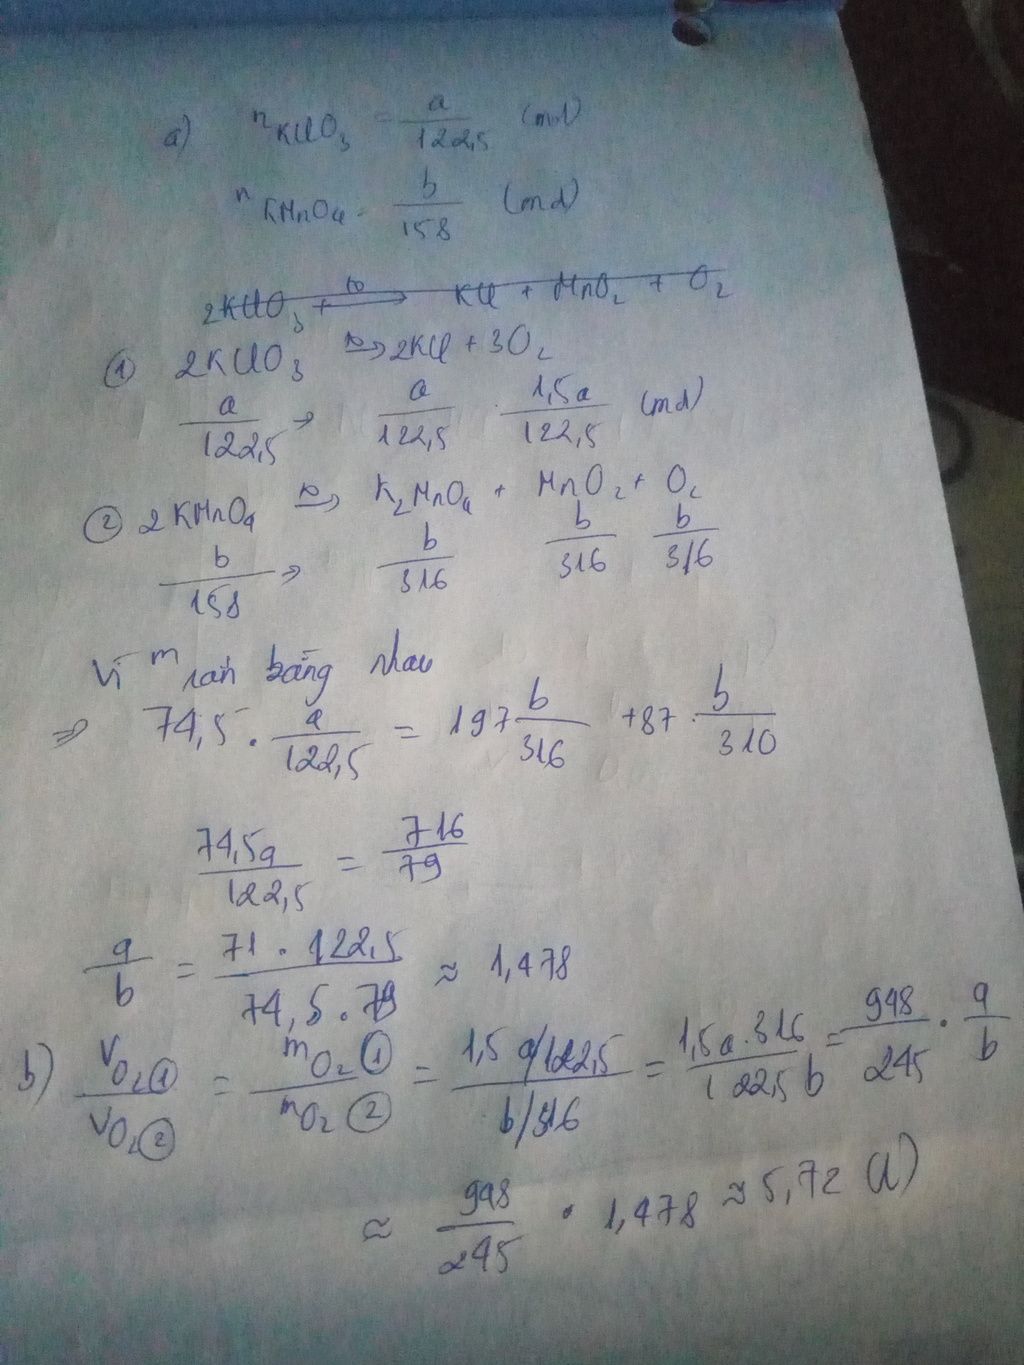 a) nKClO3 = a/122,5 (mol)
nKMnO4 = b/158 (mol)
2KClO3 + t° → KCl + MnO2 + O2
① 2KClO3 t°→ 2KCl + 3O2
a/122,5 → a/122,5 1,5a/122,5 (mol)
② 2KMnO4 t°→ K2MnO4 + MnO2 + O2
b/158 → b/316 b/316 b/316
Vì m rắn bằng nhau
⇒ 74,5 . a/122,5 = 197 b/316 + 87 . b/310
74,5a/122,5 = 716/79
a/b = 71 . 122,5/74,5 . 79 ≈ 1,478
b) VO2①/VO2② = mO2①/mO2② = 1,5 a/122,5/b/316 = 1,5a . 316/122,5b = 948/245 . a/b
≈ 948/245 . 1,478 ≈ 5,72 (l)